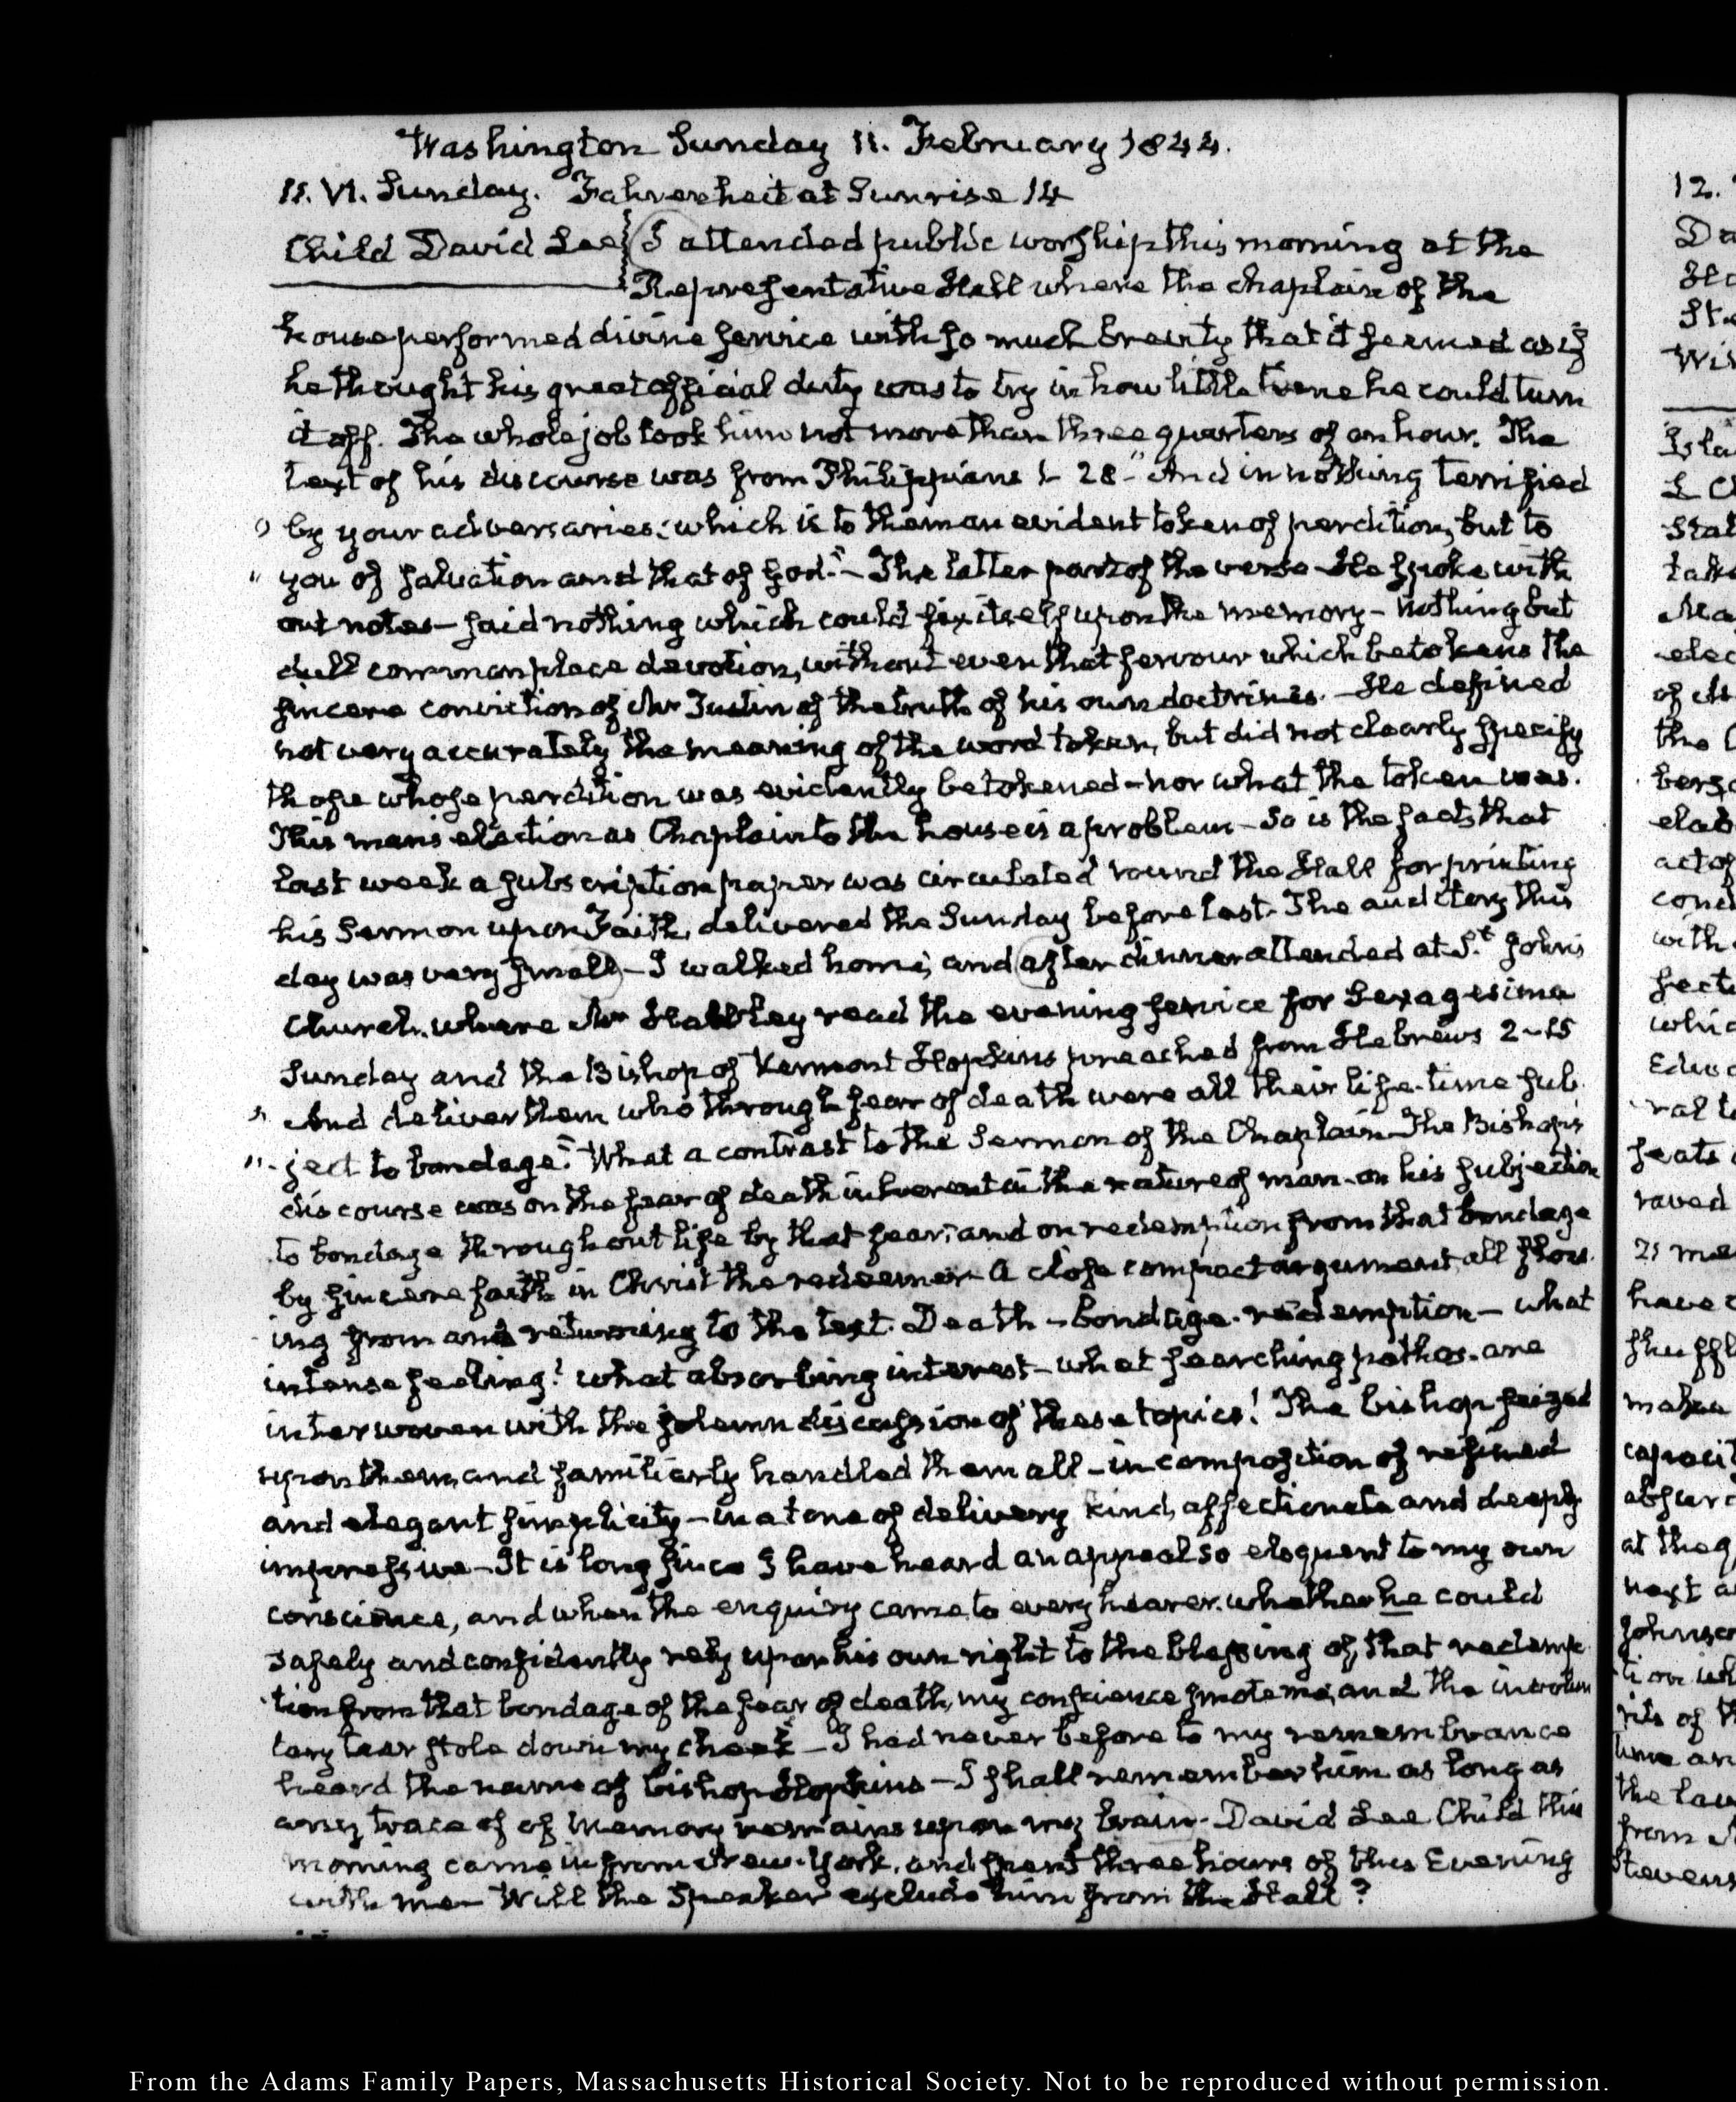 Washington Sunday 11. February 1844.
11. VI. Sunday. Fahrenheit at Sunrise 14
Child David Lee } I attended public worship this morning at the
Representative Hall where the chaplain of the
house performed divine service with so much brevity that it seemed as if
he thought his great official duty was to try in how little time he could turn
it off. The whole job took him not more than three quarters of an hour. The
text of his discourse was from Philippians 1-28 "And in nothing terrified
" by your adversaries: which is to them an evident token of perdition, but to
" you of salvation and that of God." - The latter part of the verse He spoke with
out notes - said nothing which could fix itself upon the memory - nothing but
dull common place devotion, without even that fervour which betokens the
sincere conviction of Mr Tustin of the truth of his own doctrines. - He defined
not very accurately the meaning of the word token, but did not clearly specify
those whose perdition was evidently betokened - nor what the token was.
This man's election as Chaplain to the house is a problem - So is the fact, that
last week a subscription paper was circulated round the Hall for printing
his Sermon upon Faith, delivered the Sunday before last. The auditory this
day was very small - I walked home, and after dinner attended at St. John's
Church. where Mr Hawley read the evening service for Sexagesima
Sunday and the Bishop of Vermont Hopkins preached from Hebrews 2-15
" And deliver them who through fear of death were all their life-time sub
" ject to bondage." What a contrast to the Sermon of the Chaplain - The Bishop's
discourse was on the fear of death inherent in the nature of man - on his subjection
to bondage throughout life by that fear; and on redemption from that bondage
by sincere faith in Christ the redeemer - A close compact argument, all flow
ing from and returning to the text. Death - bondage - redemption - what
intense feeling! what absorbing interest - what searching pathos. are
interwoven with the solemn discussion of these topics! The bishop seized
upon them, and familiarly handled them all - in composition of refined
and elegant simplicity - in a tone of delivery kind, affectionate and deeply
impressive - It is long since I have heard an appeal so eloquent to my own
conscience, and when the enquiry came, to every hearer. whether he could
safely and confidently rely upon his own right to the blessing of that redemp
tion from that bondage of the fear of death, my conscience smote me, and the involun
tary tear stole down my cheek - I had never before to my remembrance
heard the name of bishop Hopkins - I shall remember him as long as
any trace of of memory remains upon my brain - David Lee Child this
morning came in from New-York, and spent three hours of this Evening
with me - Will the Speaker exclude him from the Hall?
12.
From the Adams Family Papers, Massachusetts Historical Society. Not to be reproduced without permission.